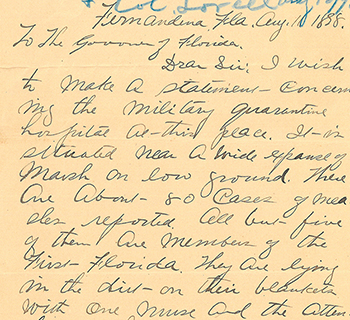 Col Lovell Aug 17
Fernandina Fla. Aug. 1898.
To The Governor of Florida.
Dear Sir: I wish
to make a statement- concern
ing the military quarantine
hospital at-this place. It-is
situated near a wide expanse of
Marsh on low ground. There
are about- 80 cases of mea
sles reported. All but five
of them are members of the
First-Florida. They are lying
in the dirt-on their blankets
with one nurse and the atten